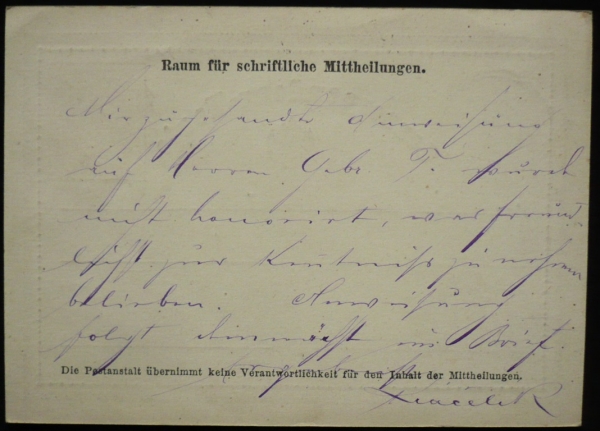 Raum für schriftliche Mittheilungen.
Mir zugesandte Anweisung
auf Herren Gebr. T. wurde
nicht honorirt, was freund-
lichst zur Kentniss zu nehmen
belieben. Anweisung
folgt demnächst im Brief.
Die Postanstalt übernimmt keine Verantwortlichkeit für den Inhalt der Mittheilungen.